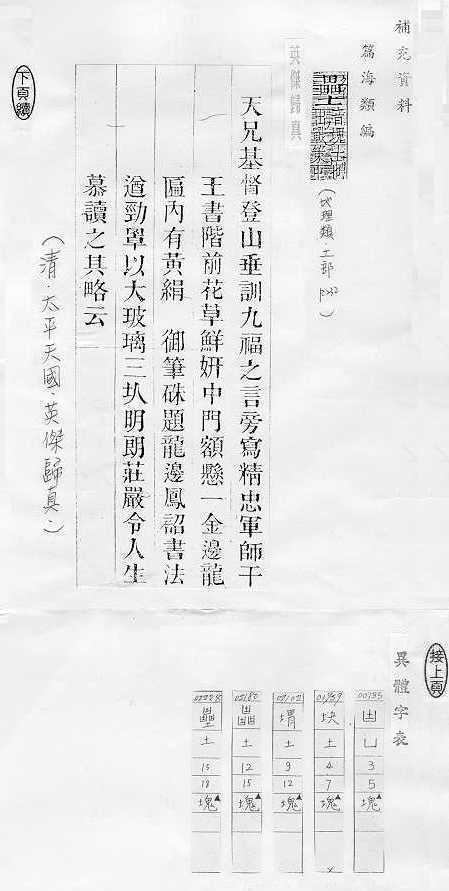 補充資料
篇海類編
英傑歸真
天兄基督登山垂訓九福之言旁寫精忠軍師干
王書階前花草鮮妍中門額懸一金邊龍
匾內有黃絹 御筆硃題龍邊鳳詔書法
遒勁罩以大玻璃三圦明朗莊嚴令人生
慕讀之其略云
(清.太平天國.英傑歸真.)
下頁續
接上頁
異體字表
凷 凵 3 5 塊▲
块 土 4 7 塊▲
土 9 12 塊▲
土 12 15 塊▲
土 15 18 塊▲